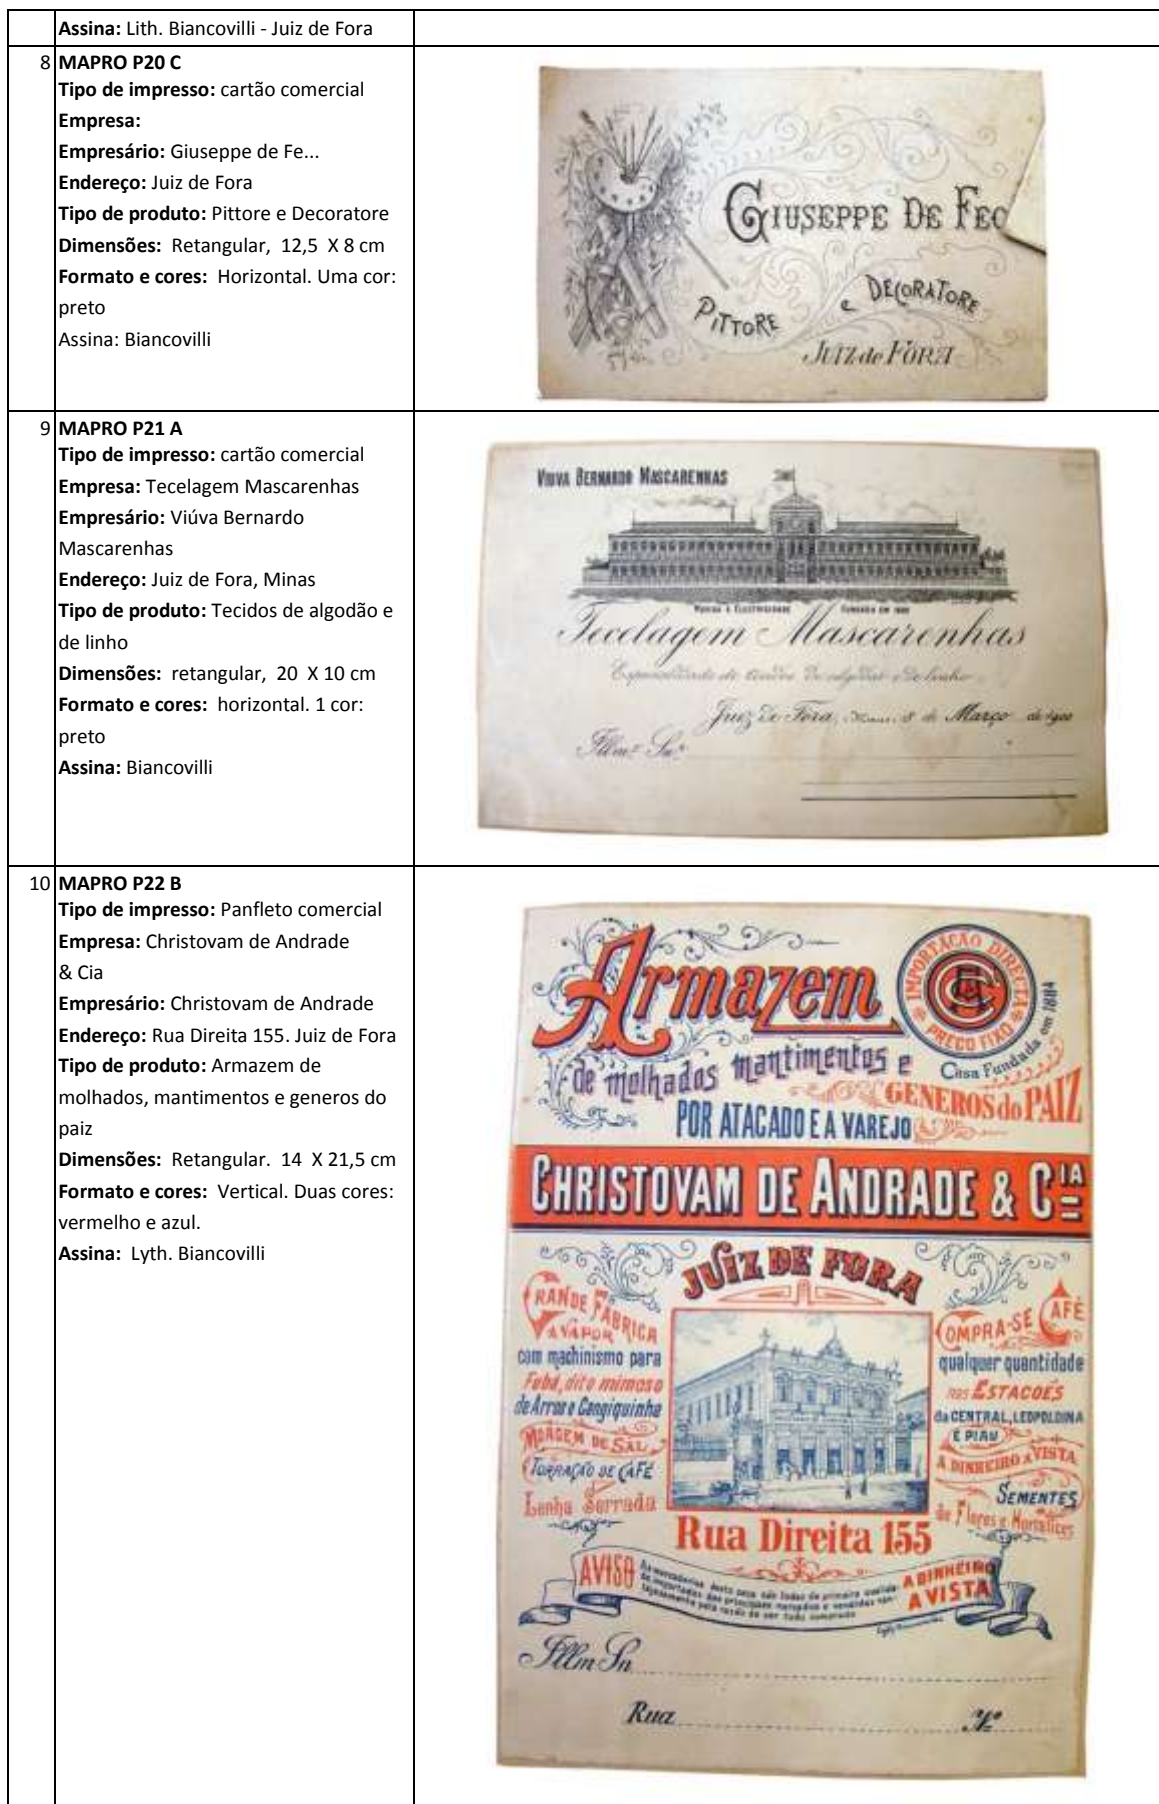 Assina: Lith. Biancovilli - Juiz de Fora
8 MAPRO P20 C
Tipo de impresso: cartão comercial
Empresa:
Empresário: Giuseppe de Fe...
Endereço: Juiz de Fora
Tipo de produto: Pittore e Decoratore
Dimensões: Retangular, 12,5 X 8 cm
Formato e cores: Horizontal. Uma cor:
preto
Assina: Biancovilli
GIUSEPPE DE FEO
PITTORE e DECORATORE
JUIZ de FÓRA
9 MAPRO P21 A
Tipo de impresso: cartão comercial
Empresa: Tecelagem Mascarenhas
Empresário: Viúva Bernardo
Mascarenhas
Endereço: Juiz de Fora, Minas
Tipo de produto: Tecidos de algodão e
de linho
Dimensões: retangular, 20 X 10 cm
Formato e cores: horizontal. 1 cor:
preto
Assina: Biancovilli
VIUVA BERNARDO MASCARENHAS
MOVIDA A ELECTRICIDADE FUNDADA EM
Tecelagem Mascarenhas
Especialidade de tecidos de algodão e de linho
Juiz de Fóra, Minas, 8 de Março de 1900
Illmº Snr.
10 MAPRO P22 B
Tipo de impresso: Panfleto comercial
Empresa: Christovam de Andrade
& Cia
Empresário: Christovam de Andrade
Endereço: Rua Direita 155. Juiz de Fora
Tipo de produto: Armazem de
molhados, mantimentos e generos do
paiz
Dimensões: Retangular. 14 X 21,5 cm
Formato e cores: Vertical. Duas cores:
vermelho e azul.
Assina: Lyth. Biancovilli
Armazem
IMPORTAÇÃO DIRECTA
PREÇO FIXO
Casa Fundada em 1884
de molhados mantimentos e
GENEROS do PAIZ
POR ATACADO E A VAREJO
CHRISTOVAM DE ANDRADE & CIA
JUIZ DE FORA
GRANDE FABRICA
A VAPOR
com machinismo para
Fubá, dito mimoso
de Arroz e Cangiquinha
MOAGEM DE SAL
TORRAÇÃO DE CAFÉ
Lenha Serrada
COMPRA-SE CAFÉ
qualquer quantidade
nas ESTAÇOES
da CENTRAL, LEOPOLDINA
E PIAU
A DINHEIRO A VISTA
SEMENTES
de Flores e Hortalices
Rua Direita 155
AVISO
As mercadorias desta casa são todas de primeira qualida-
de importadas dos principaes mercados e vendidas van-
tajosamente pela razão de ser tudo comprado
A DINHEIRO
A VISTA
Illm Sn
Rua Nº